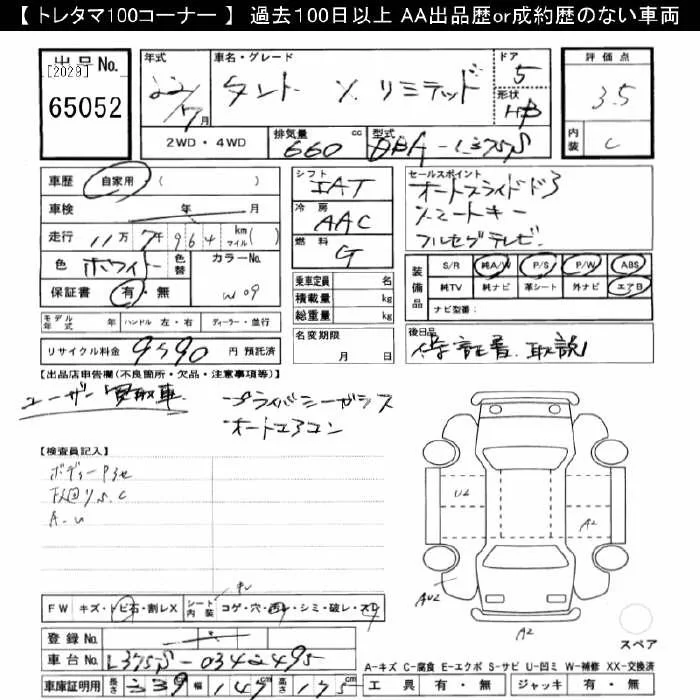 【 トレタマ100コーナー 】 過去100日以上 AA出品歴or成約歴のない車両
出品 No.
[2029]
65052
年式
22/7月
車名・グレード
タント X リミテッド
ドア
5
形状
HB
評価点
3.5
内装
C
2WD・4WD
排気量
660 cc
型式
DBA-L375S
車歴 自家用 ( )
車検 年 月
走行 11万 7千 964 km マイル ( )
色 ホワイト 色替 カラーNo. W09
保証書 有・無
シフト
IAT
冷房
AAC
燃料
G
乗車定員 名
積載量 kg
総重量 kg
名変期限
月 日
セールスポイント
オートスライドドア
スマートキー
フルセグテレビ
装備品
S/R 純A/W P/S P/W ABS
純TV 純ナビ 革シート 外ナビ エアB
ナビ型番:
モデル年式 年 ハンドル 左・右 ディーラー・並行
リサイクル料金 9590 円 預託済
後日品
保証書、取説
【出品店申告欄(不良箇所・欠品・注意事項等)】
ユーザー買取車
・プライバシーガラス
・オートエアコン
【検査員記入】
ボディーPシセ
下回りS.C
A-U
U2
A2
AU2
A2
FW キズ・トビ石・割レX
シート内装 コゲ・穴・切レ・シミ・破レ・スレ
登録 No.
車台 No. L375S-0342495
車庫証明用 長さ 339 幅 147 cm 高さ 175 cm
スペア
A-キズ C-腐食 E-エクボ S-サビ U-凹ミ W-補修 XX-交換済
工具 有・無 ジャッキ 有・無